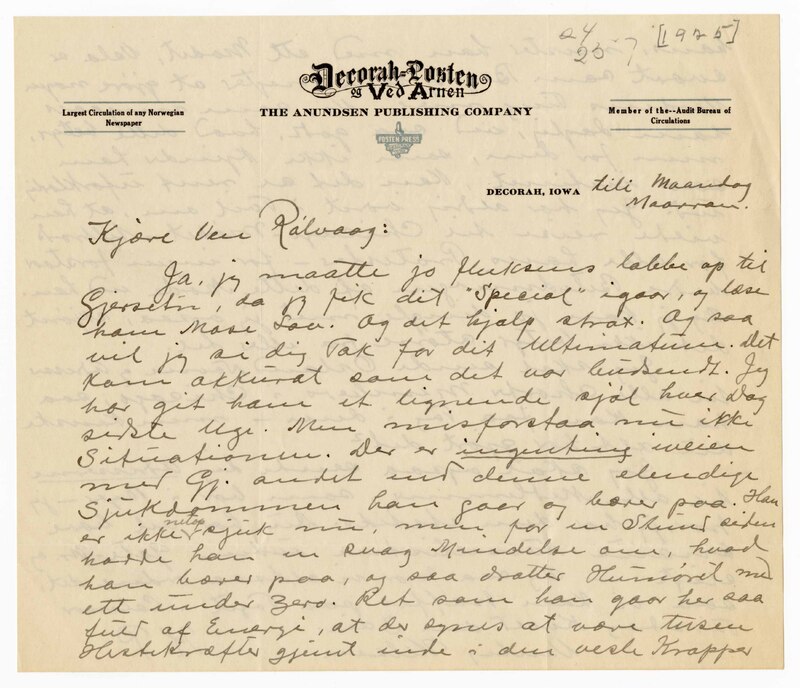 24
25 7 [1925]
Decorah-Posten
og Ved Arnen
THE ANUNDSEN PUBLISHING COMPANY
Largest Circulation of any Norwegian
Newspaper
Member of the--Audit Bureau of
Circulations
POSTEN PRESS
DECORAH, IOWA tili Maandag
Maarran.
Kjære Ven Rølvaag:
Ja, jeg maatte jo fluksens labbe op til
Gjerset'n, da jeg fik dit "Special" igaar, og læse
ham Mose Lov. Og det hjalp strax. Og saa
vil jeg si dig Tak for dit Ultimatum. Det
kom akkurat som det var budsendt. Jeg
har git ham et lignende sjøl hver Dag
sidste Uge. Men misforstaa nu ikke
Situationen. Der er ingenting iveien
med Gj. andet end denne elendige
Sjukdommen han gaar og bærer paa. Han
er ikke netop sjuk nu, men for en Stund siden
hadde han en svag Mindelse om, hvad
han bærer paa, og saa dratter Humøret med
ett under Zero. Ret som han gaar her saa
fuld af Energi, at der synes at være tusen
Hestekræfter gjemt inde i den vesle Krapper